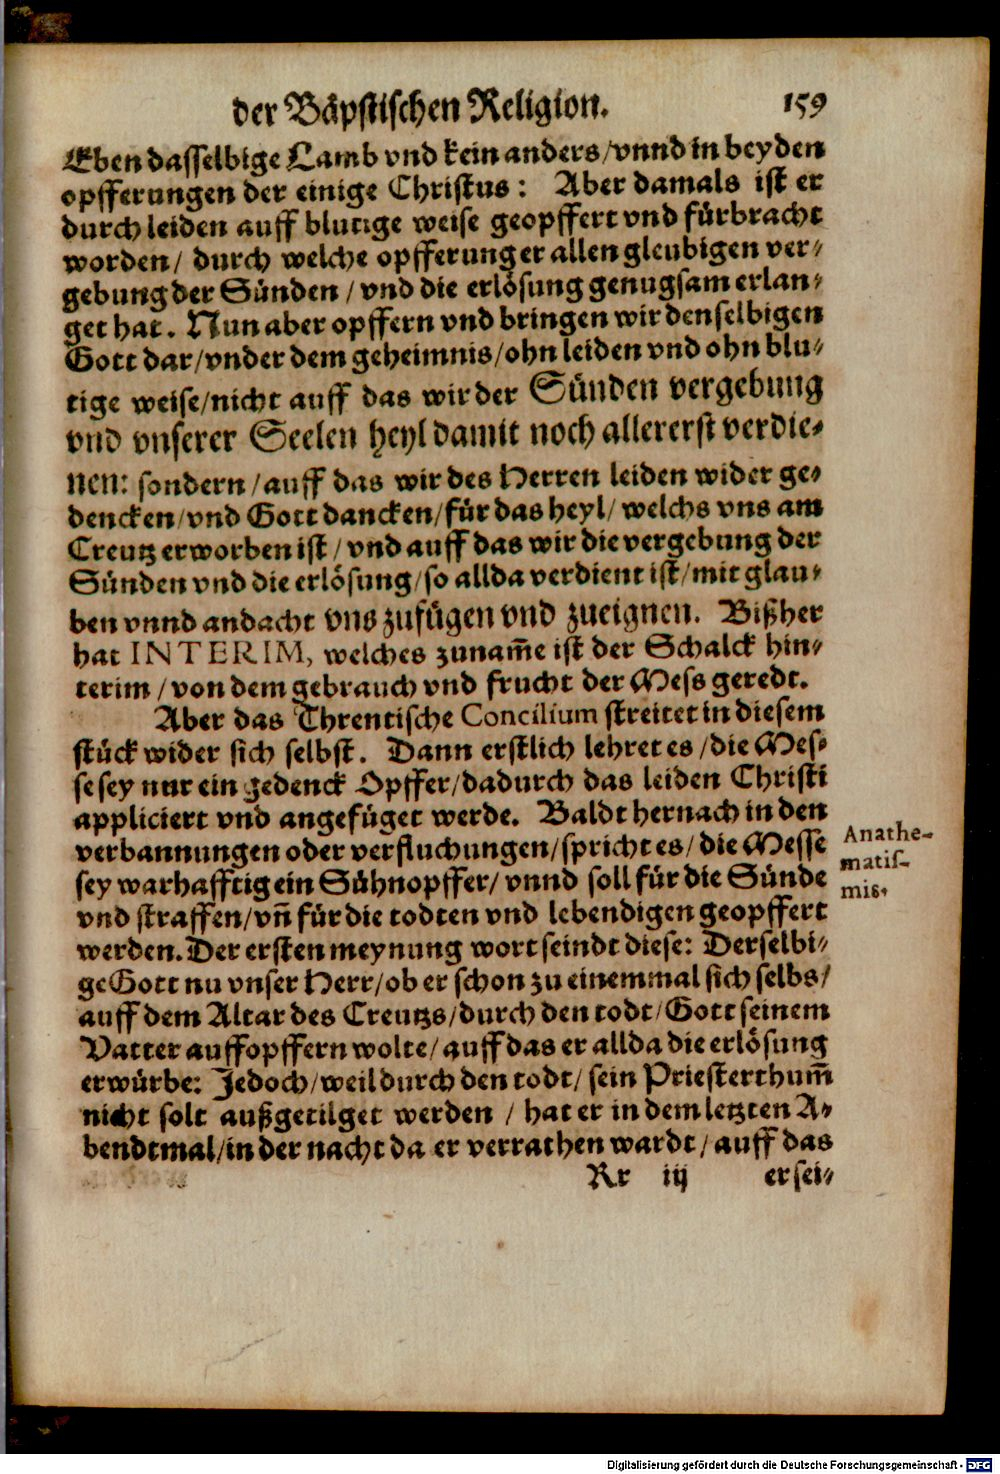 der Bäpstischen Religion. 159
Eben dasselbige Lamb vnd kein anders/vnnd in beyden
opfferungen der einige Christus: Aber damals ist er
durch leiden auff blutige weise geopffert vnd fürbracht
worden/ durch welche opfferung er allen gleubigen ver-
gebung der Sünden/vnd die erlösung genugsam erlan-
get hat. Nun aber opffern vnd bringen wir denselbigen
Gott dar/vnder dem geheimnis/ohn leiden vnd ohn blu-
tige weise/nicht auff das wir der Sünden vergebung
vnd vnserer Seelen heyl damit noch allererst verdie-
nen: sondern/auff das wir des Herren leiden wider ge-
dencken/vnd Gott dancken/für das heyl/welchs vns am
Creutz erworben ist/vnd auff das wir die vergebung der
Sünden vnd die erlösung/so allda verdient ist/mit glau-
ben vnnd andacht vns zufügen vnd zueignen. Bißher
hat INTERIM, welches zunam̃e ist der Schalck hin-
terim/von dem gebrauch vnd frucht der Mess geredt.
Aber das Threntische Concilium streitet in diesem
stück wider sich selbst. Dann erstlich lehret es/die Mes-
se sey nur ein gedenck Opffer/dadurch das leiden Christi
appliciert vnd angefüget werde. Baldt hernach in den
verbannungen oder verfluchungen/spricht es/die Messe
sey warhafftig ein Sühnopffer/vnnd soll für die Sünde
vnd straffen/vñ für die todten vnd lebendigen geopffert
werden. Der ersten meynung wort seindt diese: Derselbi-
ge Gott nu vnser Herr/ob er schon zu einemmal sich selbs/
auff dem Altar des Creutzs/durch den todt/Gott seinem
Vatter auffopffern wolte/auff das er allda die erlösung
erwürbe: Jedoch/weil durch den todt/sein Priesterthum̃
nicht solt außgetilget werden/hat er in dem letzten A-
bendtmal/in der nacht da er verrathen wardt/auff das
Rr iij ersei-
Anathe-
matis-
mis.
Digitalisierung gefördert durch die Deutsche Forschungsgemeinschaft - DFG